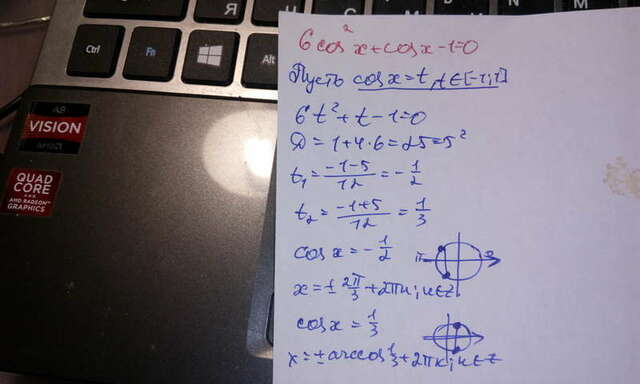 Я
Ctrl
Fn
Alt
A8
VISION
AMD
QUAD
CORE
AND RADEON™
GRAPHICS
6cos²x+cosx-1=0
Пусть cosx=t, t∈[-1;1]
6t²+t-1=0
D=1+4·6=25=5²
t₁=\frac{-1-5}{12}=-\frac{1}{2}
t₂=\frac{-1+5}{12}=\frac{1}{3}
cosx=-\frac{1}{2}
π
x=±\frac{2π}{3}+2πк; к∈Z
cosx=\frac{1}{3}
x=±arccos\frac{1}{3}+2πк; к∈Z